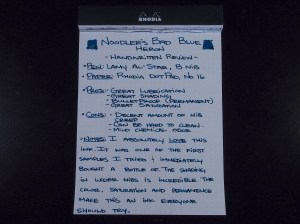 RHODIA
NOODLER'S BAD BLUE
HERON
- HANDWRITTEN REVIEW -
• PEN: LAMY AL-STAR, B NIB
• PAPER: RHODIA DOTPAD, No. 16
• PROS: - GREAT LUBRICATION
- GREAT SHADING
- BULLETPROOF (PERMANENT)
- GREAT SATURATION
• CONS: - DECENT AMOUNT OF NIB
CREEP
- CAN BE HARD TO CLEAN.
- MILD CHEMICAL ODOR
• NOTES: I ABSOLUTELY LOVE THIS
INK. IT WAS ONE OF THE FIRST
SAMPLES I TRIED & IMMEDIATELY
BOUGHT A BOTTLE OF. THE SHADING
IN WIDER NIBS IS INCREDIBLE. THE
COLOR, SATURATION AND PERMANENCE
MAKE THIS AN INK EVERYONE
SHOULD TRY.